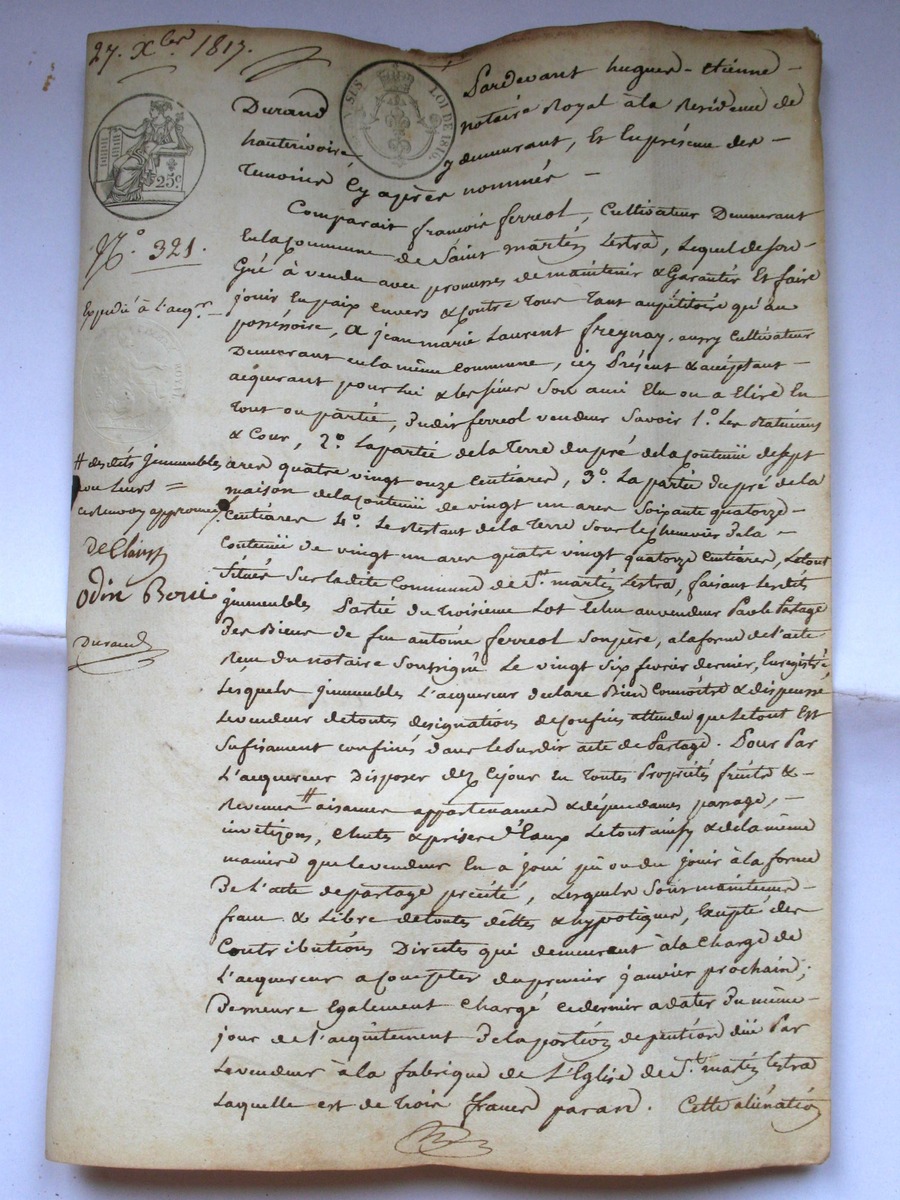 27. Xbre 1817.
Pardevant hugues - Etienne -
Durand notaire Royal à la Residence de
hauterivoire, y demeurant, Et En présence des -
Temoins Cy après nommés -
LOI DE 1816.
25c
N.° 321.
Expédié à l'acqr
Comparait françois ferreol, Cultivateur Demeurant
En la Commune de Saint martin Lestra, Lequel de son -
Gré à vendu avec promesses de maintenir & Garantir Et faire
jouir En paix Envers & Contre Tous Tant au pétitoire qu'au
possessoire, a jean marie Laurent freynay, aussy Cultivateur
Demeurant en la même Commune, icy Présent & acceptant -
acquerant pour Lui & les siens Son ami Elu ou a Elire En
Tout ou partie, Dudit ferreol vendeur Savoir 1.° Les Batimens
& Cour, 2.° La partie de la Terre du pré de la Contenue de sept
ares quatre vingt onze Centiares, 3.° La partie du pré de la
maison de la Contenue de vingt un ares Soixante quatorze -
Centiares 4.° Le Restant de la Terre Sous le chenevier de la -
Contenue de vingt un ares quatre vingt quatorze Centiares, Le tout
Situés Sur la dite Commune de St. martin Lestra, faisant Lesdits
jmmeubles Partie du troisieme Lot Echu au vendeur Par le Partage
Des Biens de feu antoine ferreol Son père, a la forme de l'acte
Reçu du notaire Soussigné Le vingt Six fevrier dernier, Enregistré
Lesquels jmmeubles L'acquereur declare Bien Connoitre & dispense
Le vendeur de toutes designations de Confins attendu que Le tout Est
Sufisament confinés dans le Susdit acte de Partage. Pour Par
L'acquereur Disposer dez Cejour En Toutes Propriétés fruits & -
Revenus # aisances appartenances & dépendances passage, -
chutes & prises d'Eaux Le tout ainsy & de la même
maniere que le vendeur En a joui pû ou du jouir à la forme
De L'acte de partage précité, Lesquels Sous maintenus -
franc & Libre de toutes dettes & hypotiques, Excepté des
Contributions Directes qui demeurent à la Charge de
L'acquereur a Compter du premier janvier prochain;
Demeure Egalement Chargé ce dernier a dater Du même -
jour de L'acquitement De la portion de pention düe Par
Le vendeur à la fabrique de L'Eglise de St. martin Lestra
Laquelle est de trois francs par an. Cette aliénation
# des dits jmmeubles
ou leurs =
ce renvoy approuvé
Odin
Durand